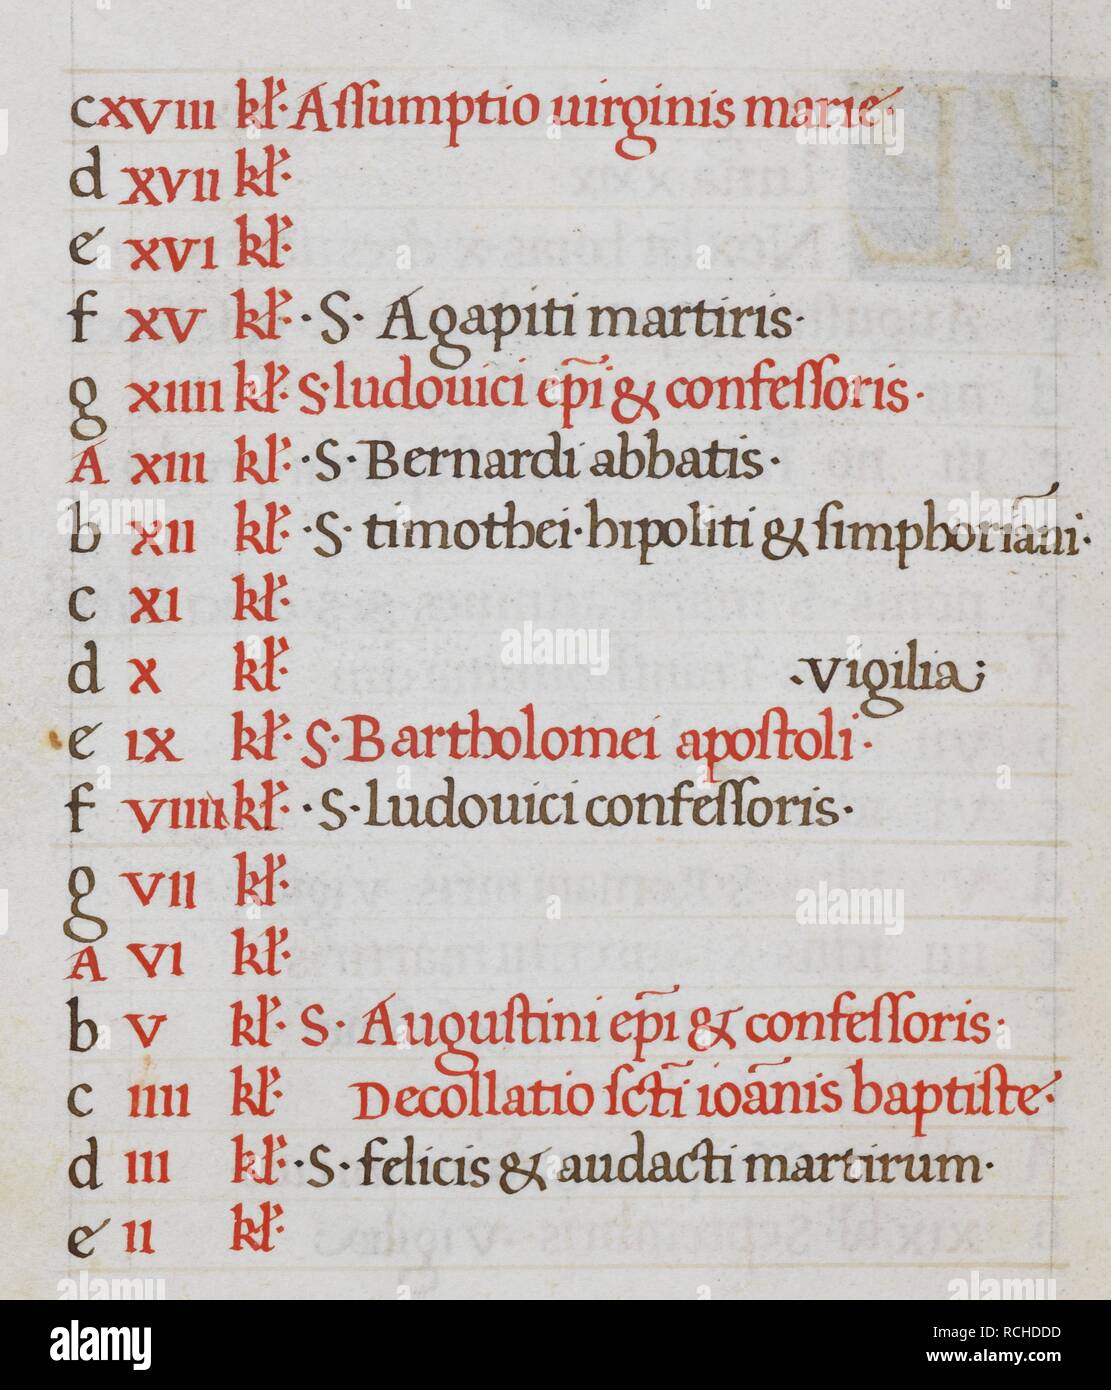 c xviii kł· Assumptio uirginis marie·
d xvii kł·
e xvi kł·
f xv kł· ·S· Agapiti martiris·
g xiiii kł· S· ludouici ep̄i & confessoris·
A xiii kł· ·S· Bernardi abbatis·
b xii kł· ·S· timothei· hipoliti & simphoriāni·
c xi kł·
d x kł· ·vigilia;
e ix kł· S· Bartholomei apostoli·
f viiii kł· ·S· ludouici confessoris·
g vii kł·
A vi kł·
b v kł· S· Augustini ep̄i & confessoris·
c iiii kł· Decollatio sctī ioānis baptiste·
d iii kł· ·S· felicis & audacti martirum·
e ii kł·
alamy
Image ID: RCHDDD
www.alamy.com